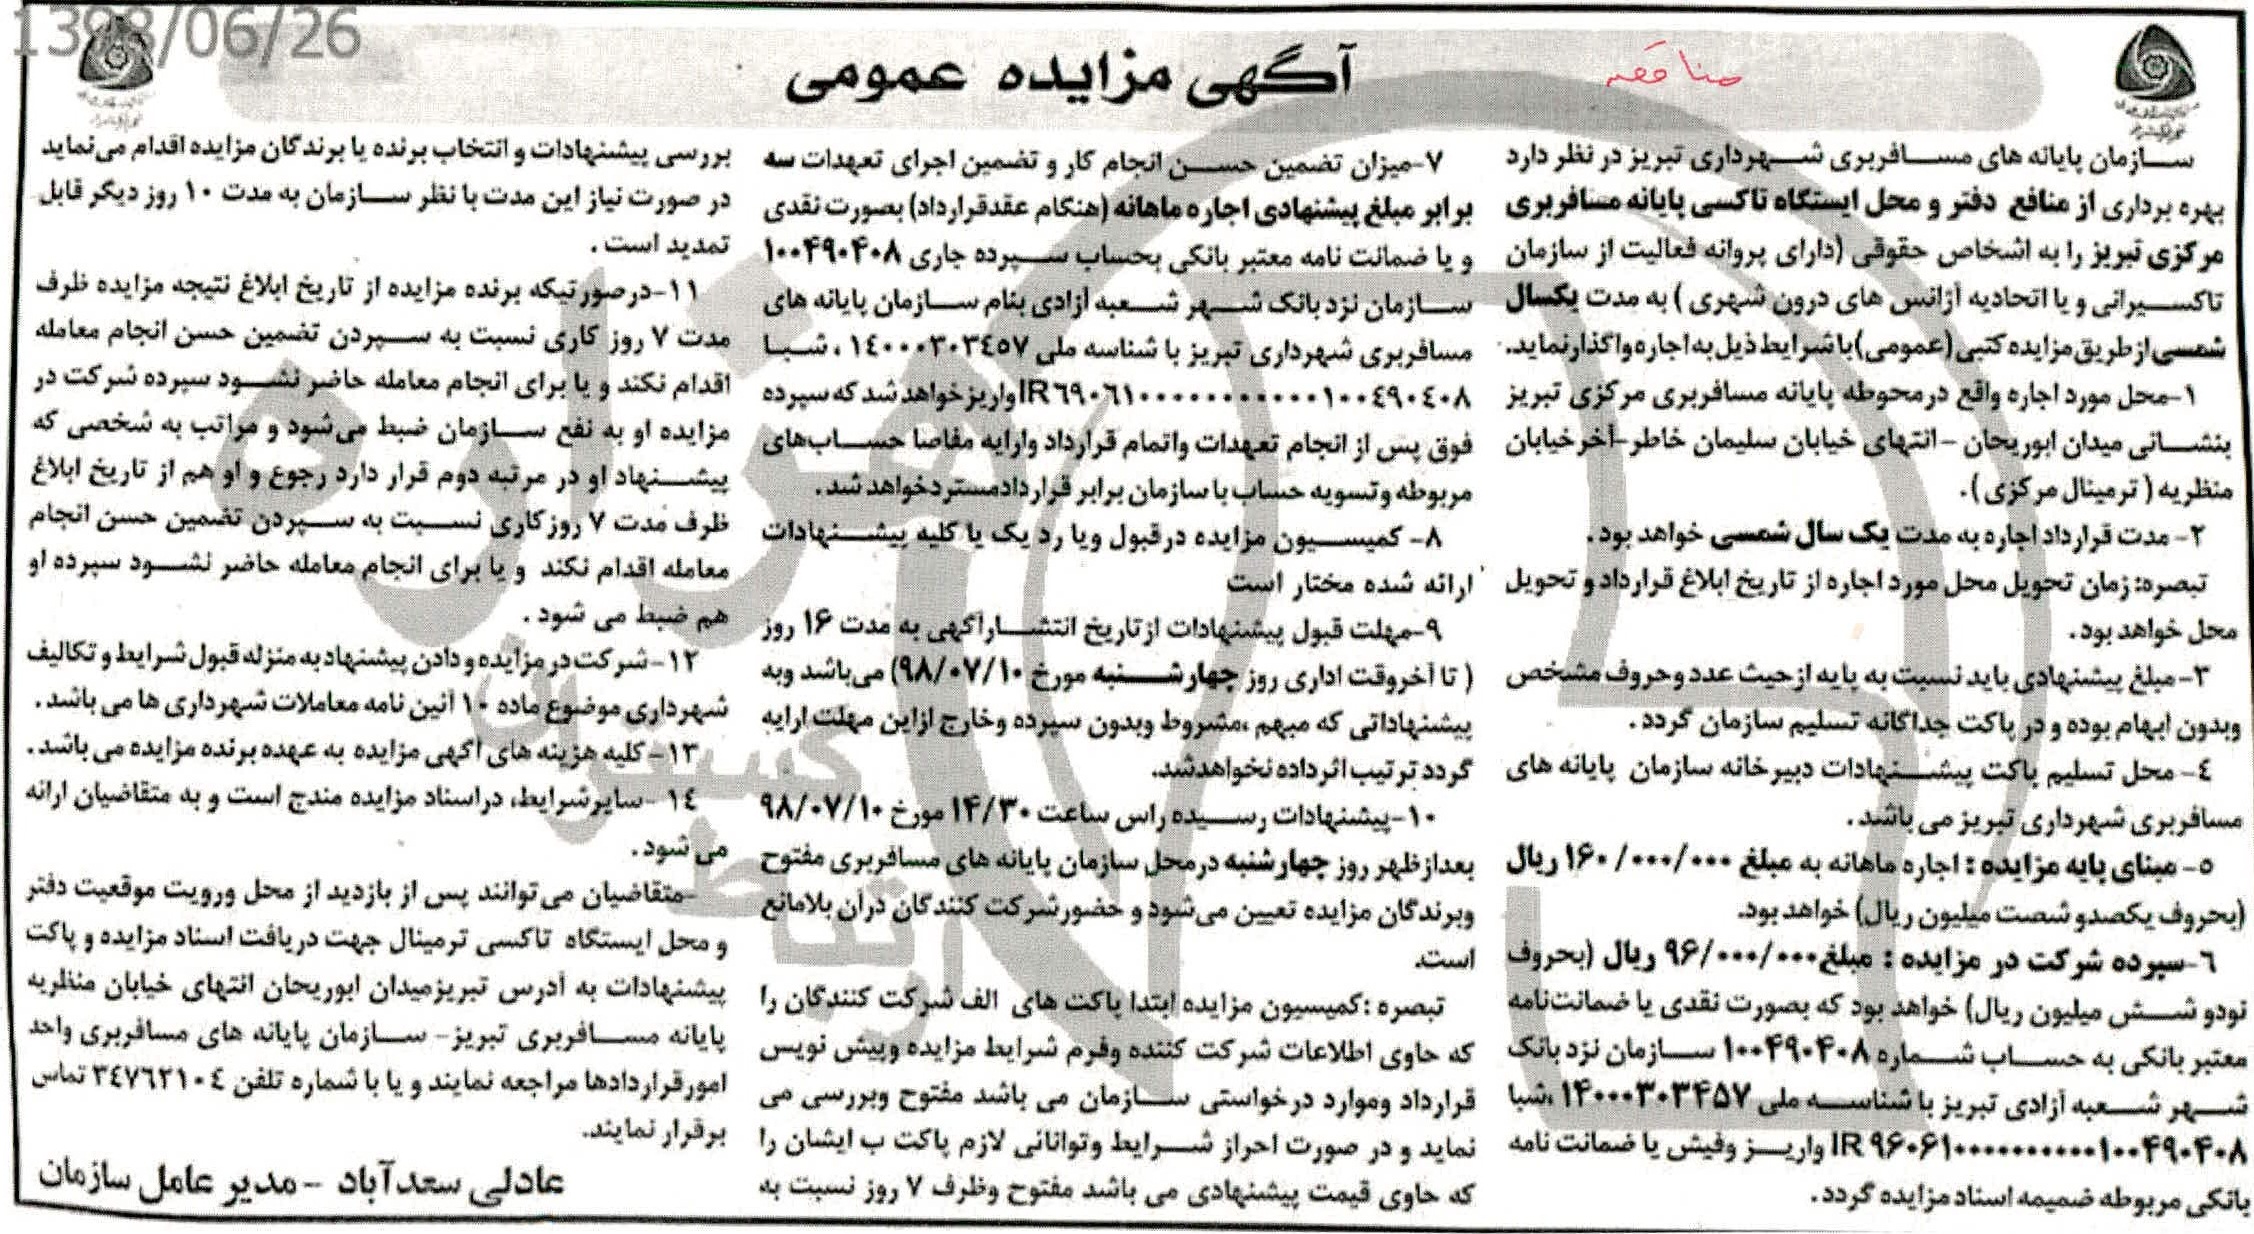 1398/06/26
آگهی مزایده عمومی
مناقصه
سازمان پایانه های مسافربری شهرداری تبریز در نظر دارد
بهره برداری از منافع دفتر و محل ایستگاه تاکسی پایانه مسافربری
مرکزی تبریز را به اشخاص حقوقی (دارای پروانه فعالیت از سازمان
تاکسیرانی و یا اتحادیه آژانس های درون شهری ) به مدت یکسال
شمسی از طریق مزایده کتبی (عمومی) با شرایط ذیل به اجاره واگذار نماید.
۱-محل مورد اجاره واقع در محوطه پایانه مسافربری مرکزی تبریز
بنشانی میدان ابوریحان -انتهای خیابان سلیمان خاطر-آخر خیابان
منظریه ( ترمینال مرکزی ).
۲- مدت قرارداد اجاره به مدت یک سال شمسی خواهد بود .
تبصره: زمان تحویل محل مورد اجاره از تاریخ ابلاغ قرارداد و تحویل
محل خواهد بود.
۳-مبلغ پیشنهادی باید نسبت به پایه از حیث عدد و حروف مشخص
وبدون ابهام بوده و در پاکت جداگانه تسلیم سازمان گردد.
٤- محل تسلیم پاکت پیشنهادات دبیرخانه سازمان پایانه های
مسافربری شهرداری تبریز می باشد .
۵- مبنای پایه مزایده : اجاره ماهانه به مبلغ ۱۶۰/۰۰۰/۰۰۰ ریال
(بحروف یکصدو شصت میلیون ریال) خواهد بود.
٦-سپرده شرکت در مزایده : مبلغ ۹۶/۰۰۰/۰۰۰ ریال (بحروف
نودو شش میلیون ریال) خواهد بود که بصورت نقدی یا ضمانت‌نامه
معتبر بانکی به حساب شماره ۱۰۰۴۹۰۴۰۸ سازمان نزد بانک
شهر شعبه آزادی تبریز با شناسه ملی ۱۴۰۰۰۳۰۳۴۵۷ ،شبا
IR ۹۶۰۶۱۰۰۰۰۰۰۰۰۰۰۱۰۰۴۹۰۴۰۸ واریز وفیش یا ضمانت نامه
بانکی مربوطه ضمیمه اسناد مزایده گردد.
۷-میزان تضمین حسن انجام کار و تضمین اجرای تعهدات سه
برابر مبلغ پیشنهادی اجاره ماهانه (هنگام عقد قرارداد) بصورت نقدی
و یا ضمانت نامه معتبر بانکی بحساب سپرده جاری ۱۰۰۴۹۰۴۰۸
سازمان نزد بانک شهر شعبه آزادی بنام سازمان پایانه های
مسافربری شهرداری تبریز با شناسه ملی ۱٤۰۰۰۳۰۳٤٥۷ ، شبا
IR٦۹۰٦۱۰۰۰۰۰۰۰۰۰۰۰۰۱۰۰٤۹۰٤۰۸ واریز خواهد شد که سپرده
فوق پس از انجام تعهدات واتمام قرارداد وارایه مفاصا حساب‌های
مربوطه وتسویه حساب با سازمان برابر قرارداد مسترد خواهد شد.
۸- کمیسیون مزایده در قبول ویا رد یک یا کلیه پیشنهادات
ارائه شده مختار است
۹-مهلت قبول پیشنهادات از تاریخ انتشار آگهی به مدت ۱۶ روز
( تا آخر وقت اداری روز چهارشنبه مورخ ۹۸/۰۷/۱۰) می‌باشد وبه
پیشنهاداتی که مبهم ،مشروط وبدون سپرده وخارج ازاین مهلت ارایه
گردد ترتیب اثر داده نخواهدشد.
۱۰-پیشنهادات رسیده راس ساعت ۱۴/۳۰ مورخ ۹۸/۰۷/۱۰
بعدازظهر روز چهارشنبه درمحل سازمان پایانه های مسافربری مفتوح
وبرندگان مزایده تعیین می‌شود و حضور شرکت کنندگان درآن بلامانع
است.
تبصره :کمیسیون مزایده ابتدا پاکت های الف شرکت کنندگان را
که حاوی اطلاعات شرکت کننده وفرم شرایط مزایده وپیش نویس
قرارداد وموارد درخواستی سازمان می باشد مفتوح وبررسی می
نماید و در صورت احراز شرایط وتوانائی لازم پاکت ب ایشان را
که حاوی قیمت پیشنهادی می باشد مفتوح وظرف ۷ روز نسبت به
بررسی پیشنهادات و انتخاب برنده یا برندگان مزایده اقدام می‌نماید
در صورت نیاز این مدت با نظر سازمان به مدت ۱۰ روز دیگر قابل
تمدید است .
۱۱-درصورتیکه برنده مزایده از تاریخ ابلاغ نتیجه مزایده ظرف
مدت ۷ روز کاری نسبت به سپردن تضمین حسن انجام معامله
اقدام نکند و یا برای انجام معامله حاضر نشود سپرده شرکت در
مزایده او به نفع سازمان ضبط می‌شود و مراتب به شخصی که
پیشنهاد او در مرتبه دوم قرار دارد رجوع و او هم از تاریخ ابلاغ
ظرف مدت ۷ روز کاری نسبت به سپردن تضمین حسن انجام
معامله اقدام نکند و یا برای انجام معامله حاضر نشود سپرده او
هم ضبط می شود .
۱۲-شرکت در مزایده و دادن پیشنهاد به منزله قبول شرایط و تکالیف
شهرداری موضوع ماده ۱۰ آئین نامه معاملات شهرداری ها می باشد .
۱۳-کلیه هزینه های آگهی مزایده به عهده برنده مزایده می باشد .
۱٤ -سایرشرایط، دراسناد مزایده مندج است و به متقاضیان ارائه
می شود.
-متقاضیان می‌توانند پس از بازدید از محل ورویت موقعیت دفتر
و محل ایستگاه تاکسی ترمینال جهت دریافت اسناد مزایده و پاکت
پیشنهادات به آدرس تبریزمیدان ابوریحان انتهای خیابان منظریه
پایانه مسافربری تبریز- سازمان پایانه های مسافربری واحد
امورقراردادها مراجعه نمایند و یا با شماره تلفن ۳٤۷٦۲۱۰٤ تماس
برقرار نمایند.
عادلی سعدآباد -مدیر عامل سازمان
هزاره
گسترش
ارتباط